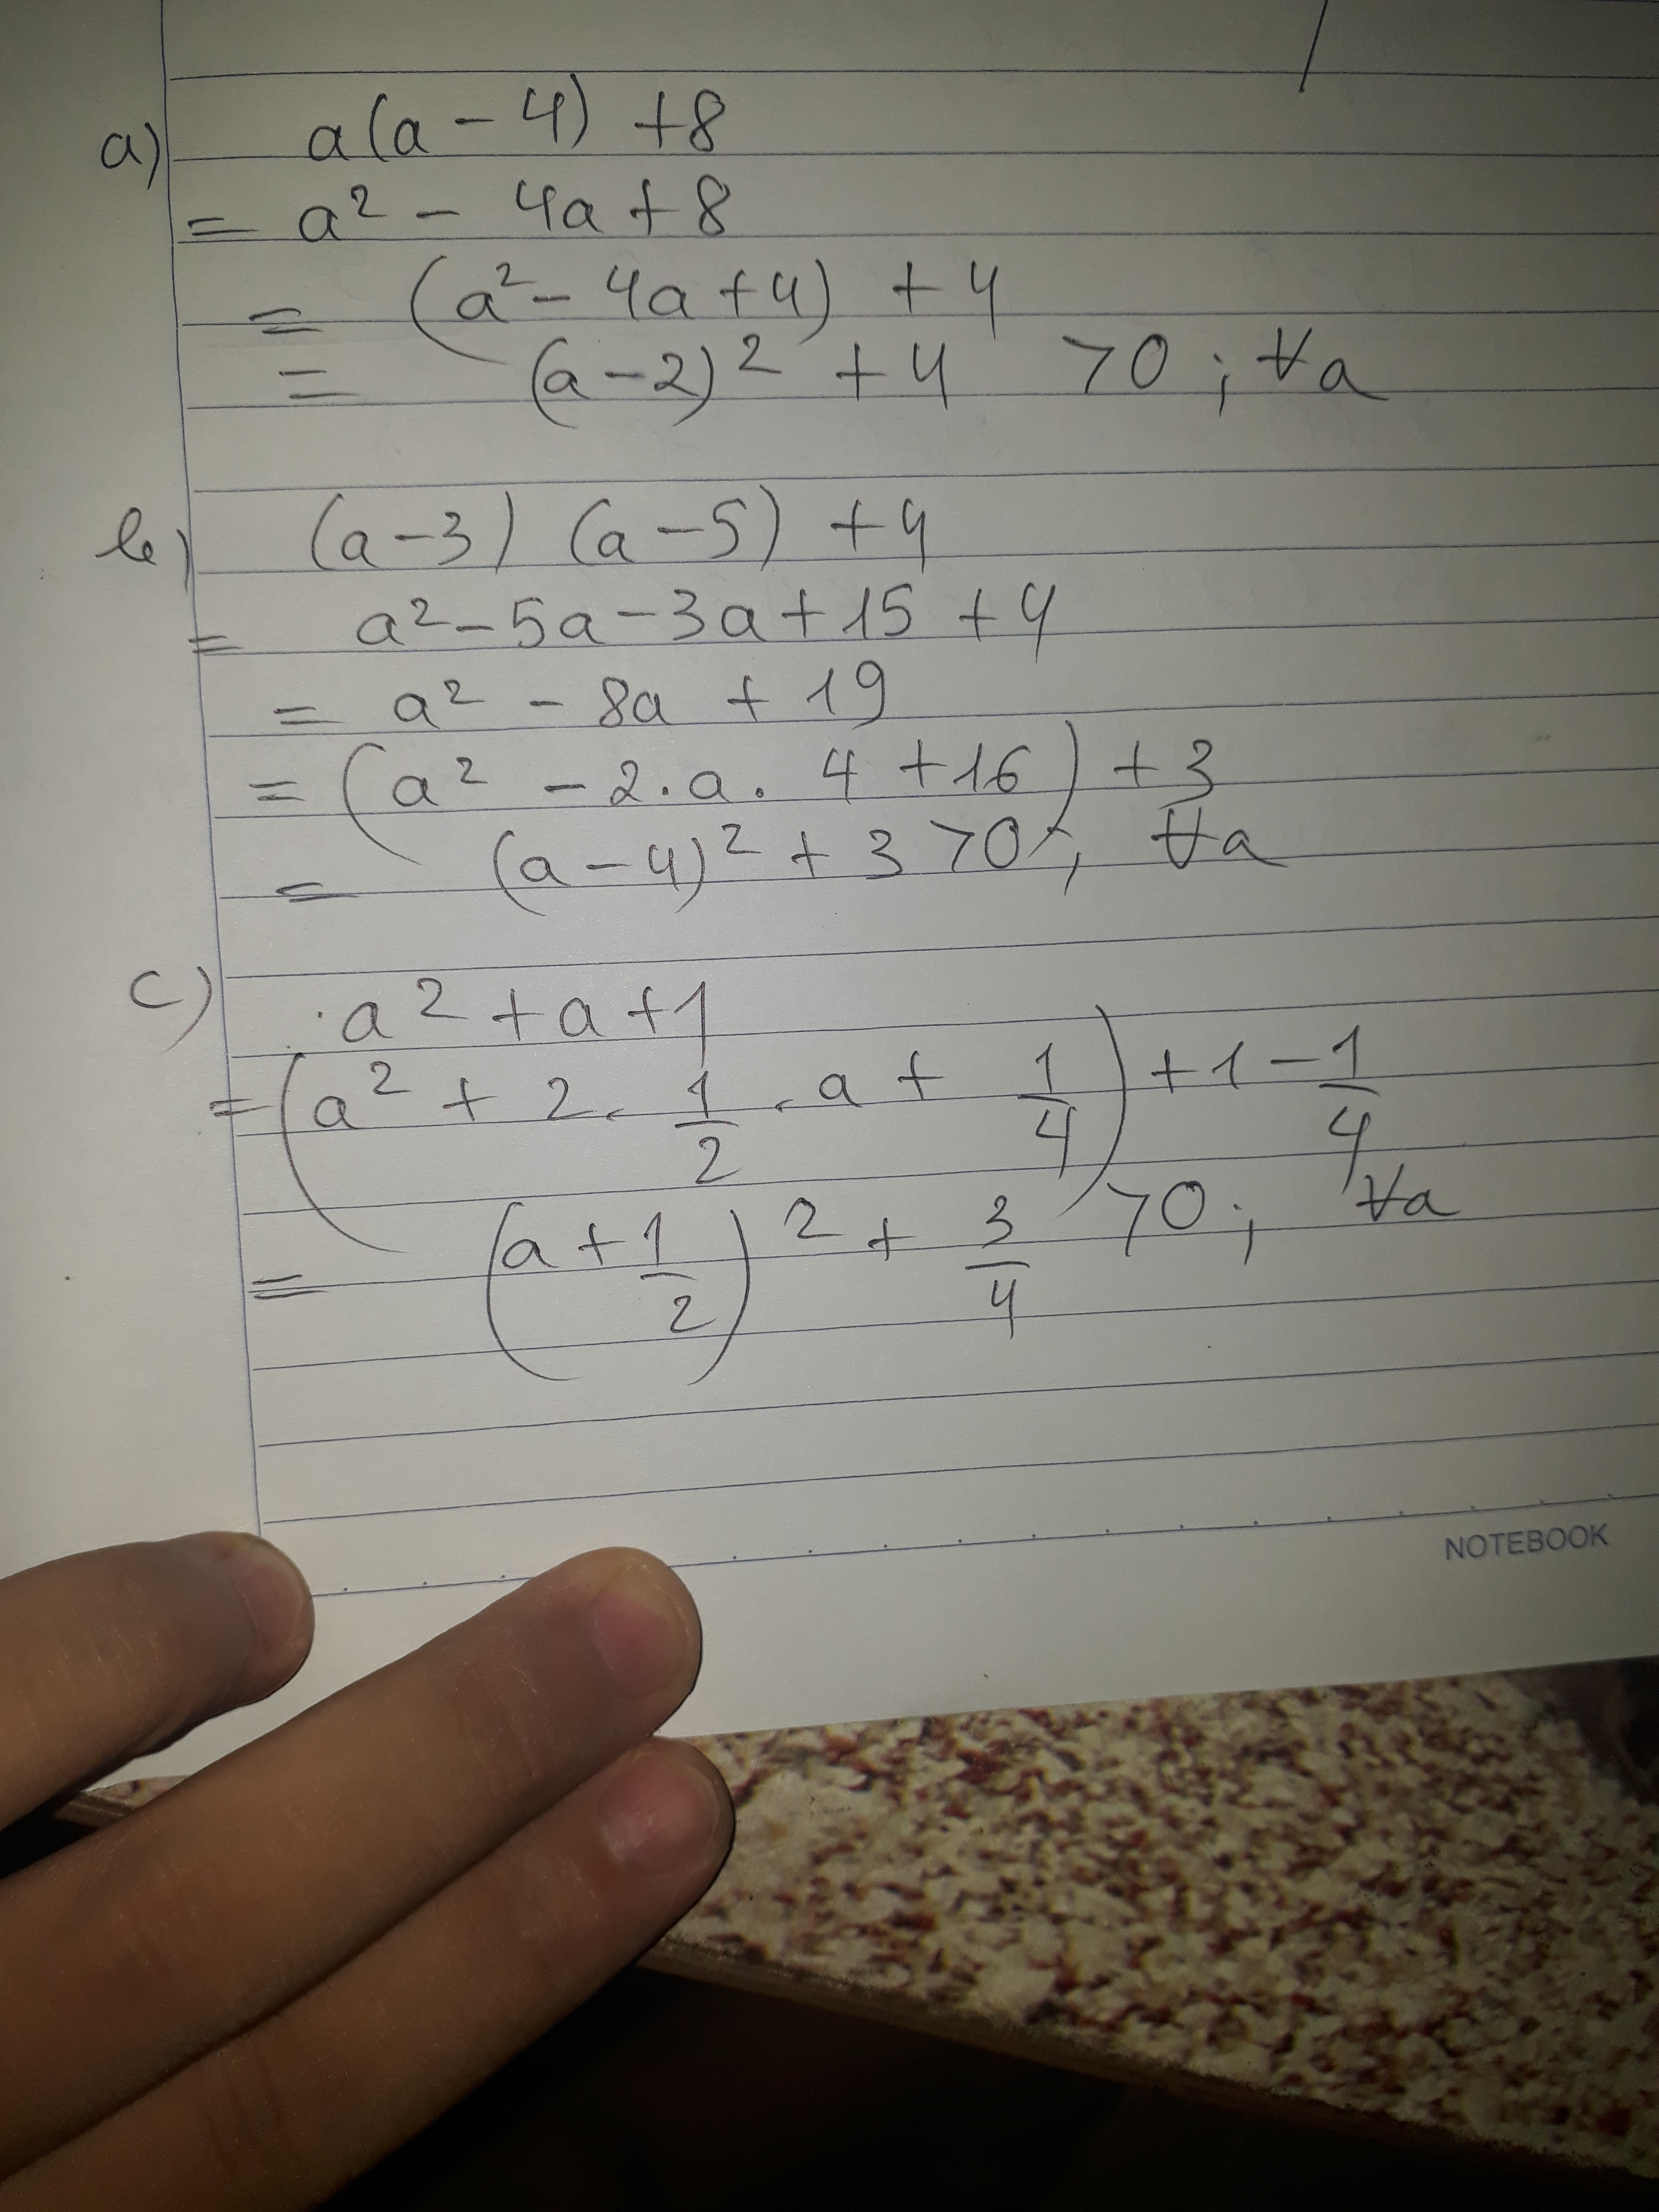 a) a(a - 4) + 8
= a² - 4a + 8
= (a² - 4a + 4) + 4
= (a - 2)² + 4 > 0 ; ∀a
b) (a - 3) (a - 5) + 4
= a² - 5a - 3a + 15 + 4
= a² - 8a + 19
= (a² - 2.a. 4 + 16) + 3
= (a - 4)² + 3 > 0 ; ∀a
c) a² + a + 1
= (a² + 2 . 1/2 . a + 1/4) + 1 - 1/4
= (a + 1/2)² + 3/4 > 0 ; ∀a
NOTEBOOK